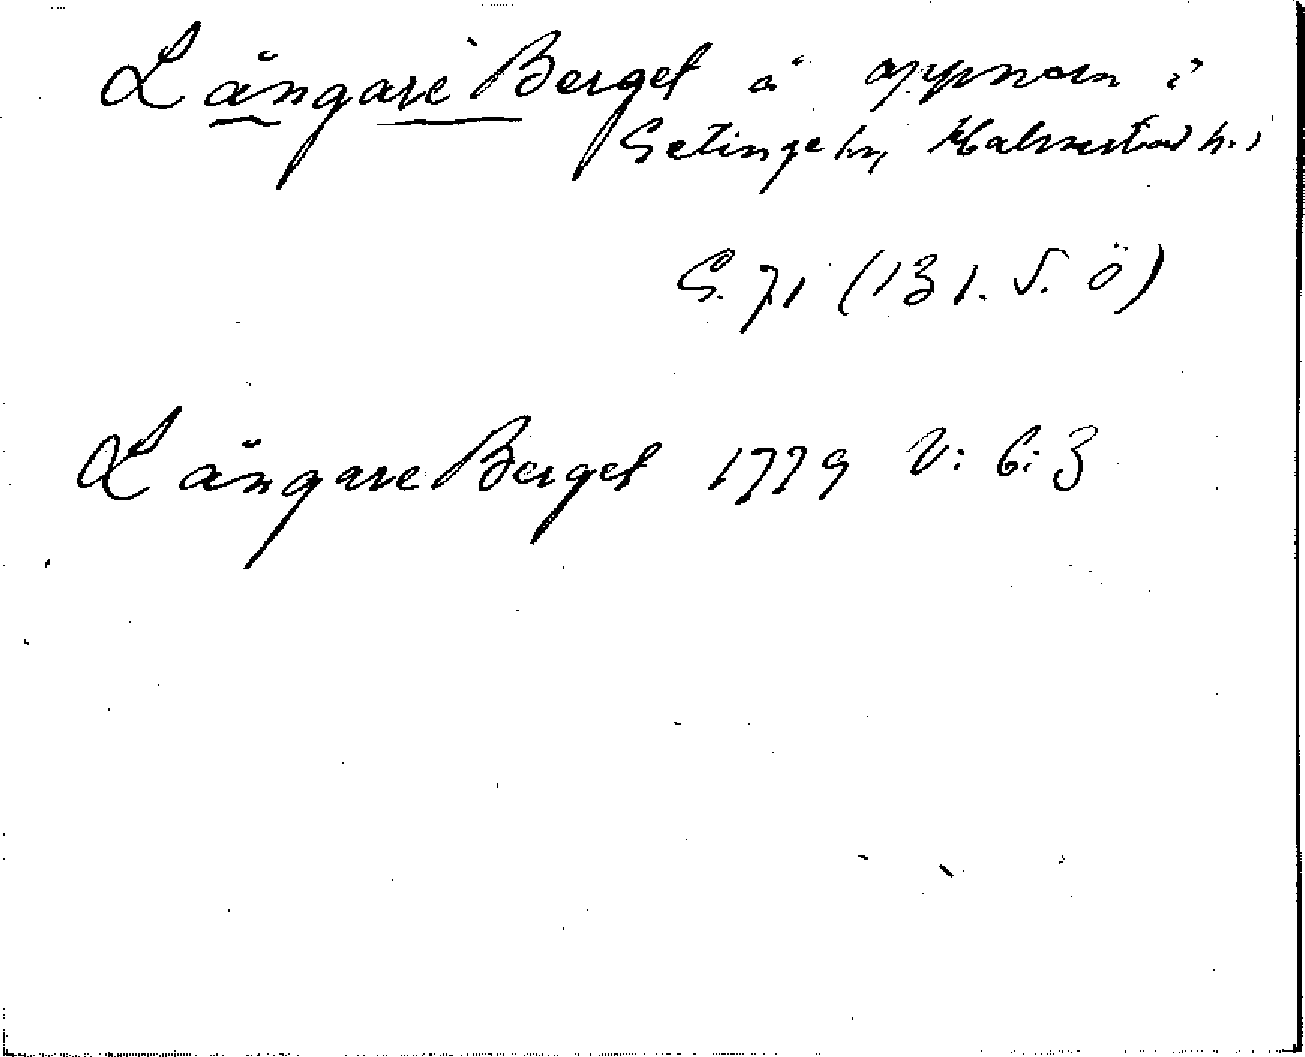 Långare Berget å appnorn i
Getinge sn, Halmstad h.,
G. 71 (131. S. Ö)
Långare Berget 1779 V: 6:3